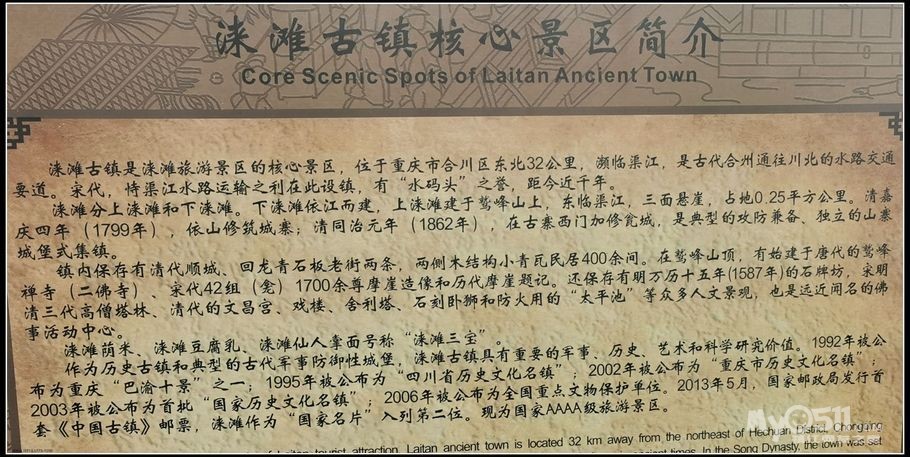 涞滩古镇核心景区简介
Core Scenic Spots of Laitan Ancient Town
涞滩古镇是涞滩旅游景区的核心景区，位于重庆市合川区东北32公里，濒临渠江，是古代合州通往川北的水路交通
要道。宋代，恃渠江水路运输之利在此设镇，有“水码头”之誉，距今近千年。
涞滩分上涞滩和下涞滩。下涞滩依江而建，上涞滩建于鹫峰山上，东临渠江，三面悬崖，占地0.25平方公里。清嘉
庆四年（1799年），依山修筑城寨；清同治元年（1862年），在古寨西门加修瓮城，是典型的攻防兼备、独立的山寨
城堡式集镇。
镇内保存有清代顺城、回龙青石板老街两条，两侧木结构小青瓦民居400余间。在鹫峰山顶，有始建于唐代的鹫峰
禅寺（二佛寺）、宋代42组（龛）1700余尊摩崖造像和历代摩崖题记。还保存有明万历十五年(1587年)的石牌坊，宋明
清三代高僧塔林、清代的文昌宫、戏楼、舍利塔、石刻卧狮和防火用的“太平池”等众多人文景观，也是远近闻名的佛
事活动中心。
涞滩荫米、涞滩豆腐乳、涞滩仙人掌面号称“涞滩三宝”。
作为历史古镇和典型的古代军事防御性城堡，涞滩古镇具有重要的军事、历史、艺术和科学研究价值。1992年被公
布为重庆“巴渝十景”之一；1995年被公布为“四川省历史文化名镇”；2002年被公布为“重庆市历史文化名镇”；
2003年被公布为首批“国家历史文化名镇”；2006年被公布为全国重点文物保护单位。2013年5月，国家邮政局发行首
套《中国古镇》邮票，涞滩作为“国家名片”入列第二位。现为国家AAAA级旅游景区。
tourist attraction, Laitan ancient town is located 32 km away from the northeast of Hechuan District, Chongqing
ancient times. In the Song Dynasty, the town was set
My0511